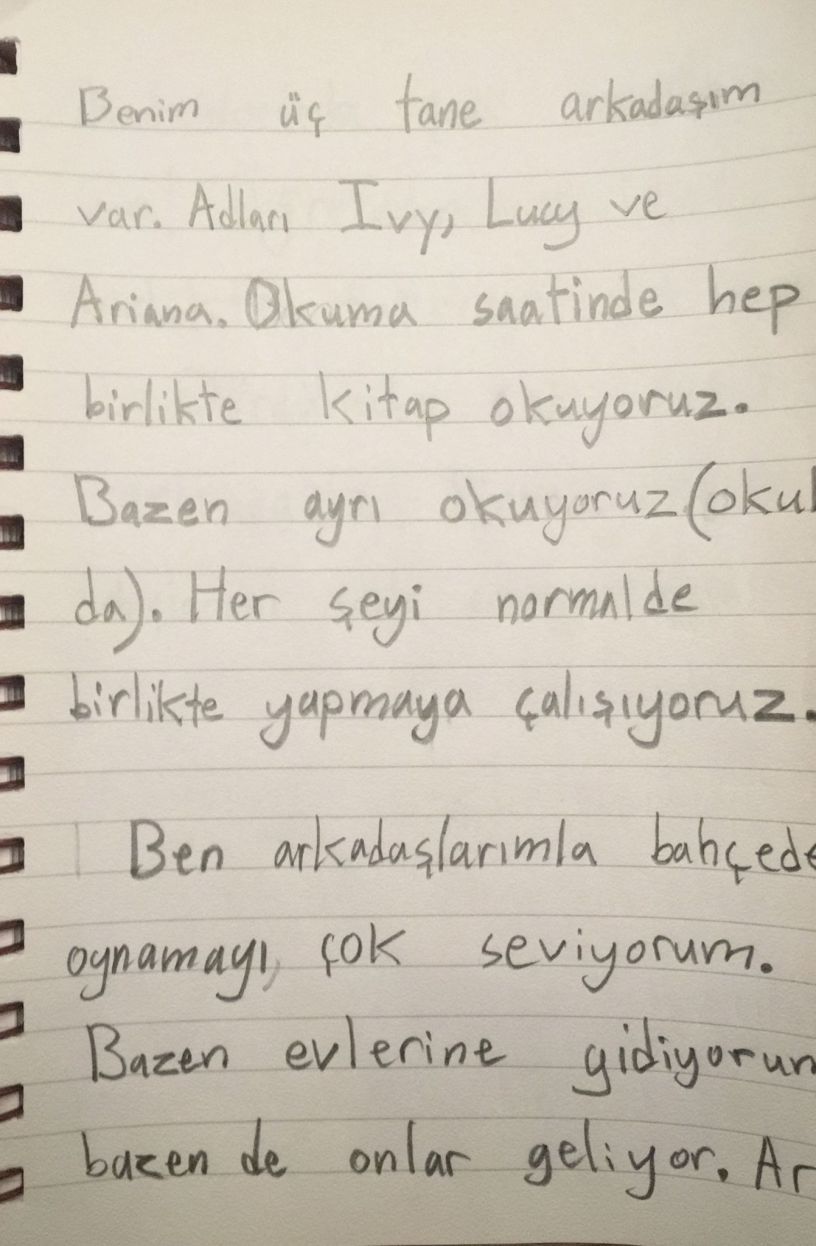 Benim üç tane arkadaşım
var. Adları Ivy, Lucy ve
Ariana. Okuma saatinde hep
birlikte kitap okuyoruz.
Bazen ayrı okuyoruz (okul
da). Her şeyi normalde
birlikte yapmaya çalışıyoruz.
Ben arkadaşlarımla bahçede
oynamayı, çok seviyorum.
Bazen evlerine gidiyorum
bazen de onlar geliyor. Ar